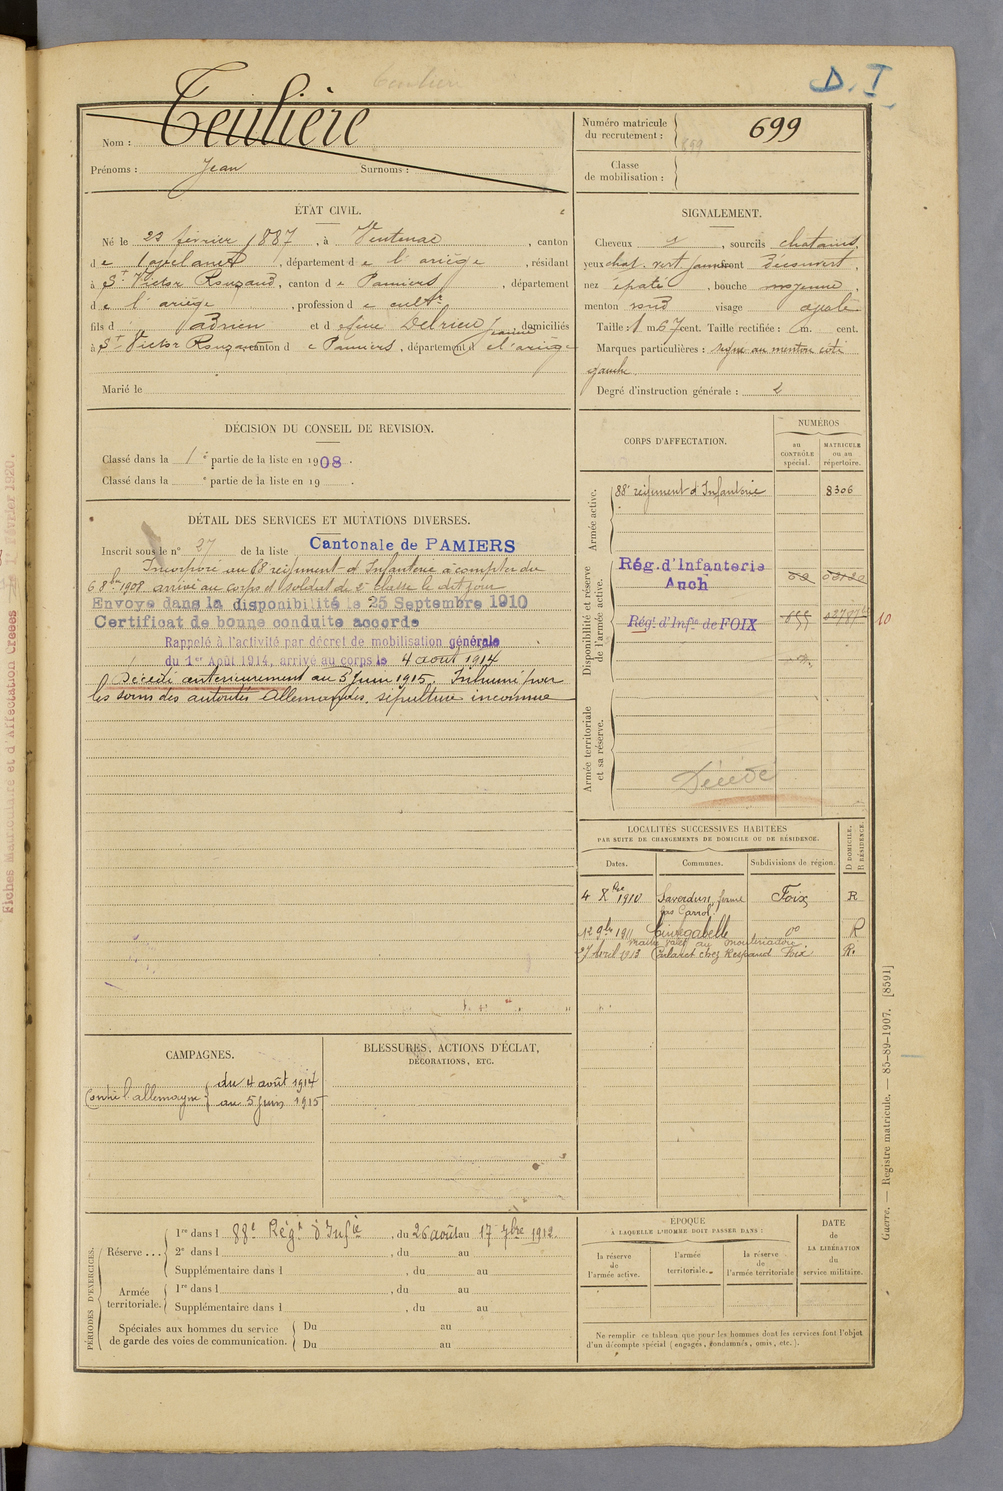 D. I.
Teulière
Nom :
Prénoms : Jean Surnoms :
Numéro matricule
du recrutement : 699
Classe
de mobilisation :
ÉTAT CIVIL.
Né le 23 février 1887, à Ventenac, canton
de Lavelanet, département de l'ariège, résidant
à St Victor Rouzaud, canton de Pamiers, département
de l'ariège, profession de cultr
fils d Adrien et de feue Delrieu Jeanne domiciliés
à St Victor Rouzaud canton de Pamiers, département de l'ariège
Marié le
SIGNALEMENT.
Cheveux, sourcils chatains,
yeux chat. vert front Découvert,
nez épaté, bouche moyenne,
menton rond visage
Taille : 1 m. 67 cent. Taille rectifiée : m. cent.
Marques particulières : au menton côté
gauche.
Degré d'instruction générale : 2
DÉCISION DU CONSEIL DE REVISION.
Classé dans la 1e partie de la liste en 1908.
Classé dans la e partie de la liste en 19 .
DÉTAIL DES SERVICES ET MUTATIONS DIVERSES.
Inscrit sous le n° 27 de la liste Cantonale de PAMIERS
Incorporé au 88 régiment d'Infanterie à compter du
6 8bre 1908 arrivé au corps et soldat de 2e classe le dit jour
Envoyé dans la disponibilité le 25 Septembre 1910
Certificat de bonne conduite accordé
Rappelé à l'activité par décret de mobilisation générale
du 1er Août 1914, arrivé au corps le 4 août 1914
Décédé antérieurement au 5 Juin 1915. Inhumé par
les soins des autorités Allemandes, sépulture inconnue
CORPS D'AFFECTATION.
NUMÉROS
au
CONTRÔLE
spécial.
MATRICULE
ou au
répertoire.
Armée active.
88e régiment d'Infanterie 8306
Disponibilité et réserve
de l'armée active.
Rég. d'Infanterie
Auch
Rég. d'Infie de FOIX
10
Armée territoriale
et sa réserve.
Décédé
LOCALITÉS SUCCESSIVES HABITÉES
PAR SUITE DE CHANGEMENTS DE DOMICILE OU DE RÉSIDENCE.
D DOMICILE.
R RÉSIDENCE.
Dates. Communes. Subdivisions de région.
4 Xbre 1910 Saverdun, ferme Foix R
12 9bre 1911 Cintegabelle do R
27 Avril 1913 chez Respaud Foix R.
CAMPAGNES.
Contre l'allemagne du 4 août 1914
au 5 juin 1915
BLESSURES, ACTIONS D'ÉCLAT,
DÉCORATIONS, ETC.
PÉRIODES D'EXERCICES.
Réserve ...
1re dans l 88e Régt d'Infie, du 26 août au 17 7bre 1912
2e dans l , du au
Supplémentaire dans l , du au
Armée
territoriale.
1re dans l , du au
Supplémentaire dans l , du au
Spéciales aux hommes du service
de garde des voies de communication.
Du au
Du au
ÉPOQUE
À LAQUELLE L'HOMME DOIT PASSER DANS :
la réserve
de
l'armée active.
l'armée
territoriale.
la réserve
de
l'armée territoriale
DATE
de
LA LIBÉRATION
du
service militaire.
Ne remplir ce tableau que pour les hommes dont les services font l'objet
d'un décompte spécial (engagés, condamnés, omis, etc.).
Guerre. — Registre matricule. — 85-89-1907. [8591]